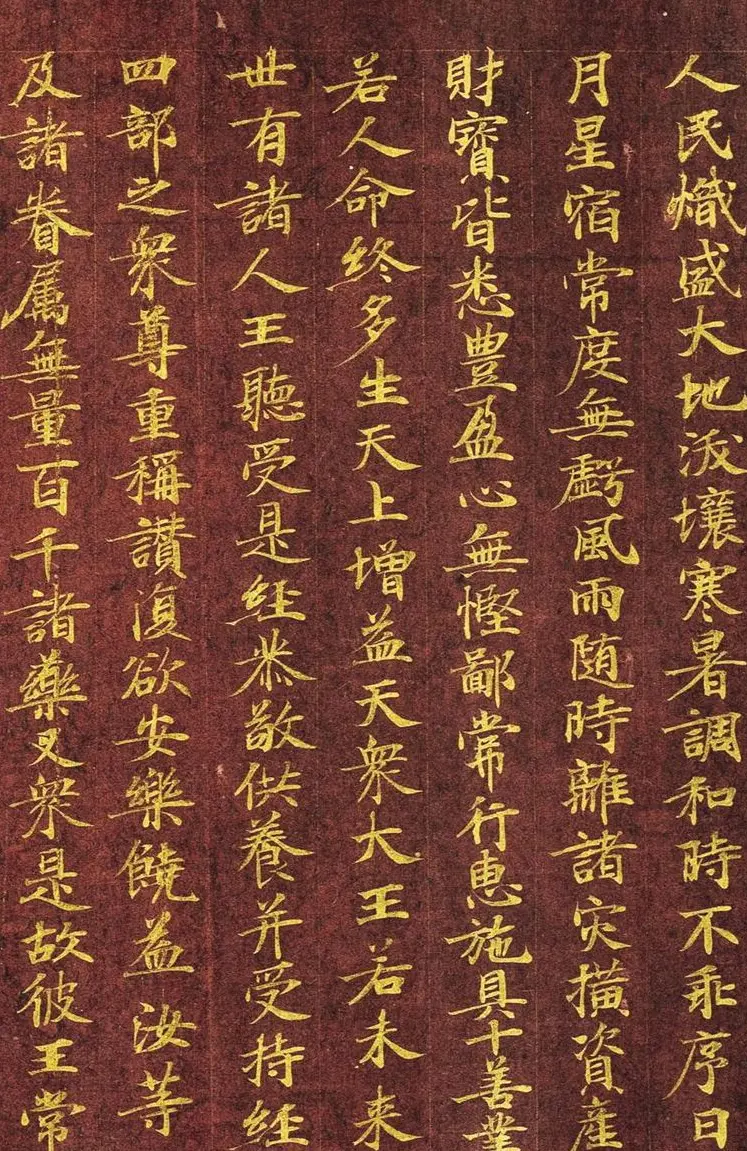 人民熾盛大地沃壤寒暑調和時不乖序日
月星宿常度無虧風雨随時離諸灾撗資產
財寶皆悉豊盈心無慳鄙常行惠施具十善業
若人命終多生天上增益天衆大王若未来
世有諸人王聽受是経恭敬供養并受持経
四部之衆尊重稱讃復欲安樂饒益汝等
及諸眷属無量百千諸藥叉衆是故彼王常